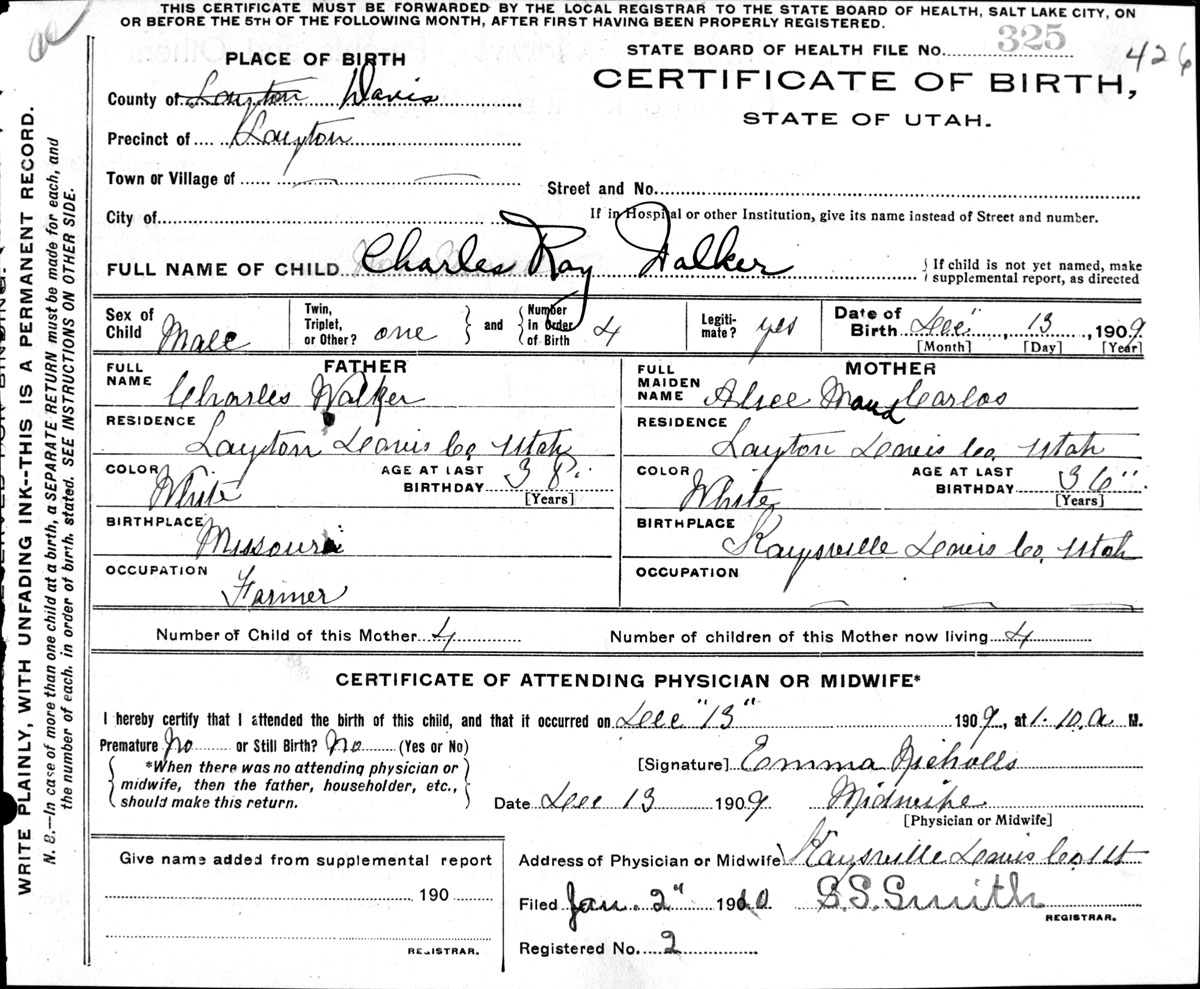 THIS CERTIFICATE MUST BE FORWARDED BY THE LOCAL REGISTRAR TO THE STATE BOARD OF HEALTH, SALT LAKE CITY, ON
OR BEFORE THE 5TH OF THE FOLLOWING MONTH, AFTER FIRST HAVING BEEN PROPERLY REGISTERED.
STATE BOARD OF HEALTH FILE No. 325
426
PLACE OF BIRTH
CERTIFICATE OF BIRTH,
STATE OF UTAH.
County of Layton Davis
Precinct of Layton
Town or Village of
Street and No.
City of
If in Hospital or other Institution, give its name instead of Street and number.
FULL NAME OF CHILD Charles Ray Walker
{ If child is not yet named, make supplemental report, as directed
Sex of Child Male
Twin, Triplet, or Other? one } and { Number in Order of Birth 4
Legiti-mate? yes
Date of Birth Dec" 13, 1909
[Month] [Day] [Year]
FATHER
FULL NAME Charles Walker
RESIDENCE Layton Davis Co. Utah
COLOR White
AGE AT LAST BIRTHDAY 38 [Years]
BIRTHPLACE Missouri
OCCUPATION Farmer
MOTHER
FULL MAIDEN NAME Alice Maud Carlos
RESIDENCE Layton Davis Co. Utah
COLOR White
AGE AT LAST BIRTHDAY 36" [Years]
BIRTHPLACE Kaysville Davis Co. Utah
OCCUPATION
Number of Child of this Mother 4
Number of children of this Mother now living 4
CERTIFICATE OF ATTENDING PHYSICIAN OR MIDWIFE*
I hereby certify that I attended the birth of this child, and that it occurred on Dec "13" 1909, at 1.10.a M.
Premature No or Still Birth? No (Yes or No)
*When there was no attending physician or
midwife, then the father, householder, etc.,
should make this return.
[Signature] Emma Nicholls
Date Dec 13 1909 Midwife
[Physician or Midwife]
Give name added from supplemental report
190
REGISTRAR.
Address of Physician or Midwife Kaysville Davis Co. Ut
Filed Jan. 2" 1910 S.S. Smith
REGISTRAR.
Registered No. 2
WRITE PLAINLY, WITH UNFADING INK--THIS IS A PERMANENT RECORD.
N. B.—In case of more than one child at a birth, a SEPARATE RETURN must be made for each, and
the number of each, in order of birth, stated. SEE INSTRUCTIONS ON OTHER SIDE.